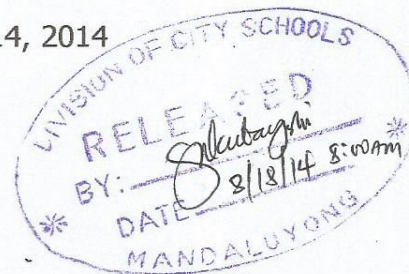 4, 2014
DIVISION OF CITY SCHOOLS
RELEASED
BY:
8/18/14 8:00AM
DATE
MANDALUYONG